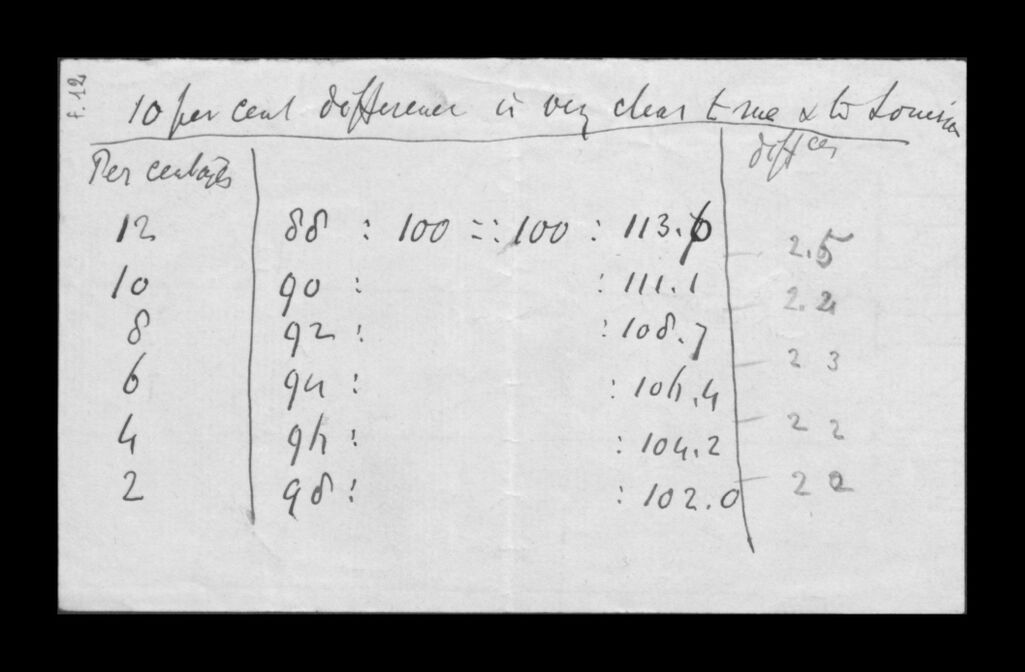 f. 12
10 per cent difference is very clear to me & to Louisa
Per centages
diffces
12 88 : 100 =: 100 : 113.6
2.5
10 90 : : 111.1
2.4
8 92 : : 108.7
2 3
6 94 : : 106.4
2 2
4 96 : : 104.2
2 2
2 98 : : 102.0